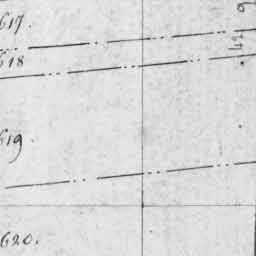 617.
618
619.
620.